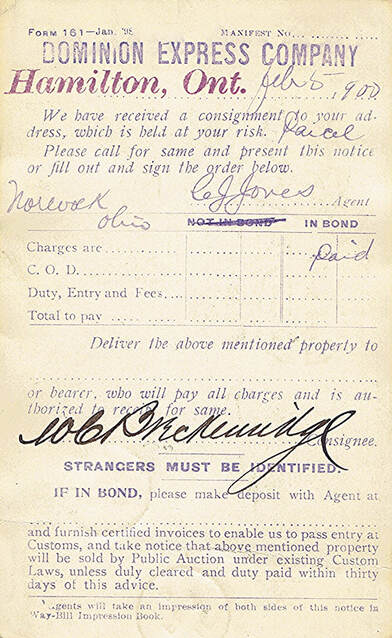 FORM 161—Jan. '98 MANIFEST No.
DOMINION EXPRESS COMPANY
Hamilton, Ont. Feb 5, 1900
We have received a consignment to your ad-
dress, which is held at your risk. Parcel
Please call for same and present this notice
or fill out and sign the order below.
C J Jones Agent
Norwalk
Ohio
NOT IN BOND IN BOND
Charges are paid
C. O. D.
Duty, Entry and Fees
Total to pay
Deliver the above mentioned property to
or bearer, who will pay all charges and is au-
thorized to receipt for same.
W C Breckenridge Consignee.
STRANGERS MUST BE IDENTIFIED.
IF IN BOND, please make deposit with Agent at
and furnish certified invoices to enable us to pass entry at
Customs, and take notice that above mentioned property
will be sold by Public Auction under existing Custom
Laws, unless duly cleared and duty paid within thirty
days of this advice.
Agents will take an impression of both sides of this notice in
Way-Bill Impression Book.